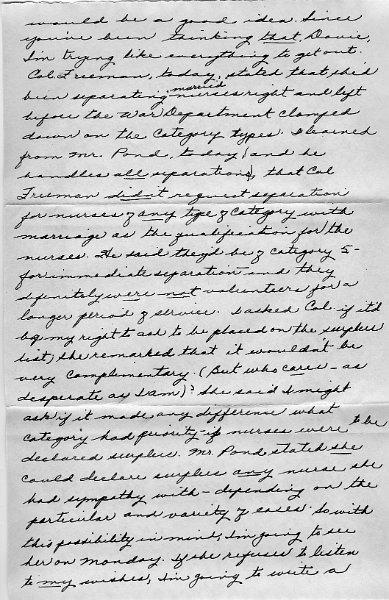 would be a good idea. Since
you've been thinking that, Davie,
I'm trying like everything to get out.
Col. Freeman, today, stated that she'd
been separating married nurses right and left
before the War Department clamped
down on the Category types. I learned
from Mr. Pond, today, and he
handles all separations, that Col
Freeman didn't request separation
for nurses of any type of Category with
marriage as the qualification for the
nurses. He said they'd be of category 5-
for immediate separation and they
definitely were not volunteers for a
longer period of service. I asked Col. if it'd
be my right to ask to be placed on the surplus
list, she remarked that it wouldn't be
very complimentary. (But who cares - as
desperate as I am)? She said I might
ask if it made any difference what
category had priority if nurses were to be
declared surplus. Mr. Pond stated she
could declare surplus any nurse she
had sympathy with - depending on the
particular and variety of cases. So with
this possibility in mind, I'm going to see
her on Monday. If she refuses to listen
to my wishes, I'm going to write a